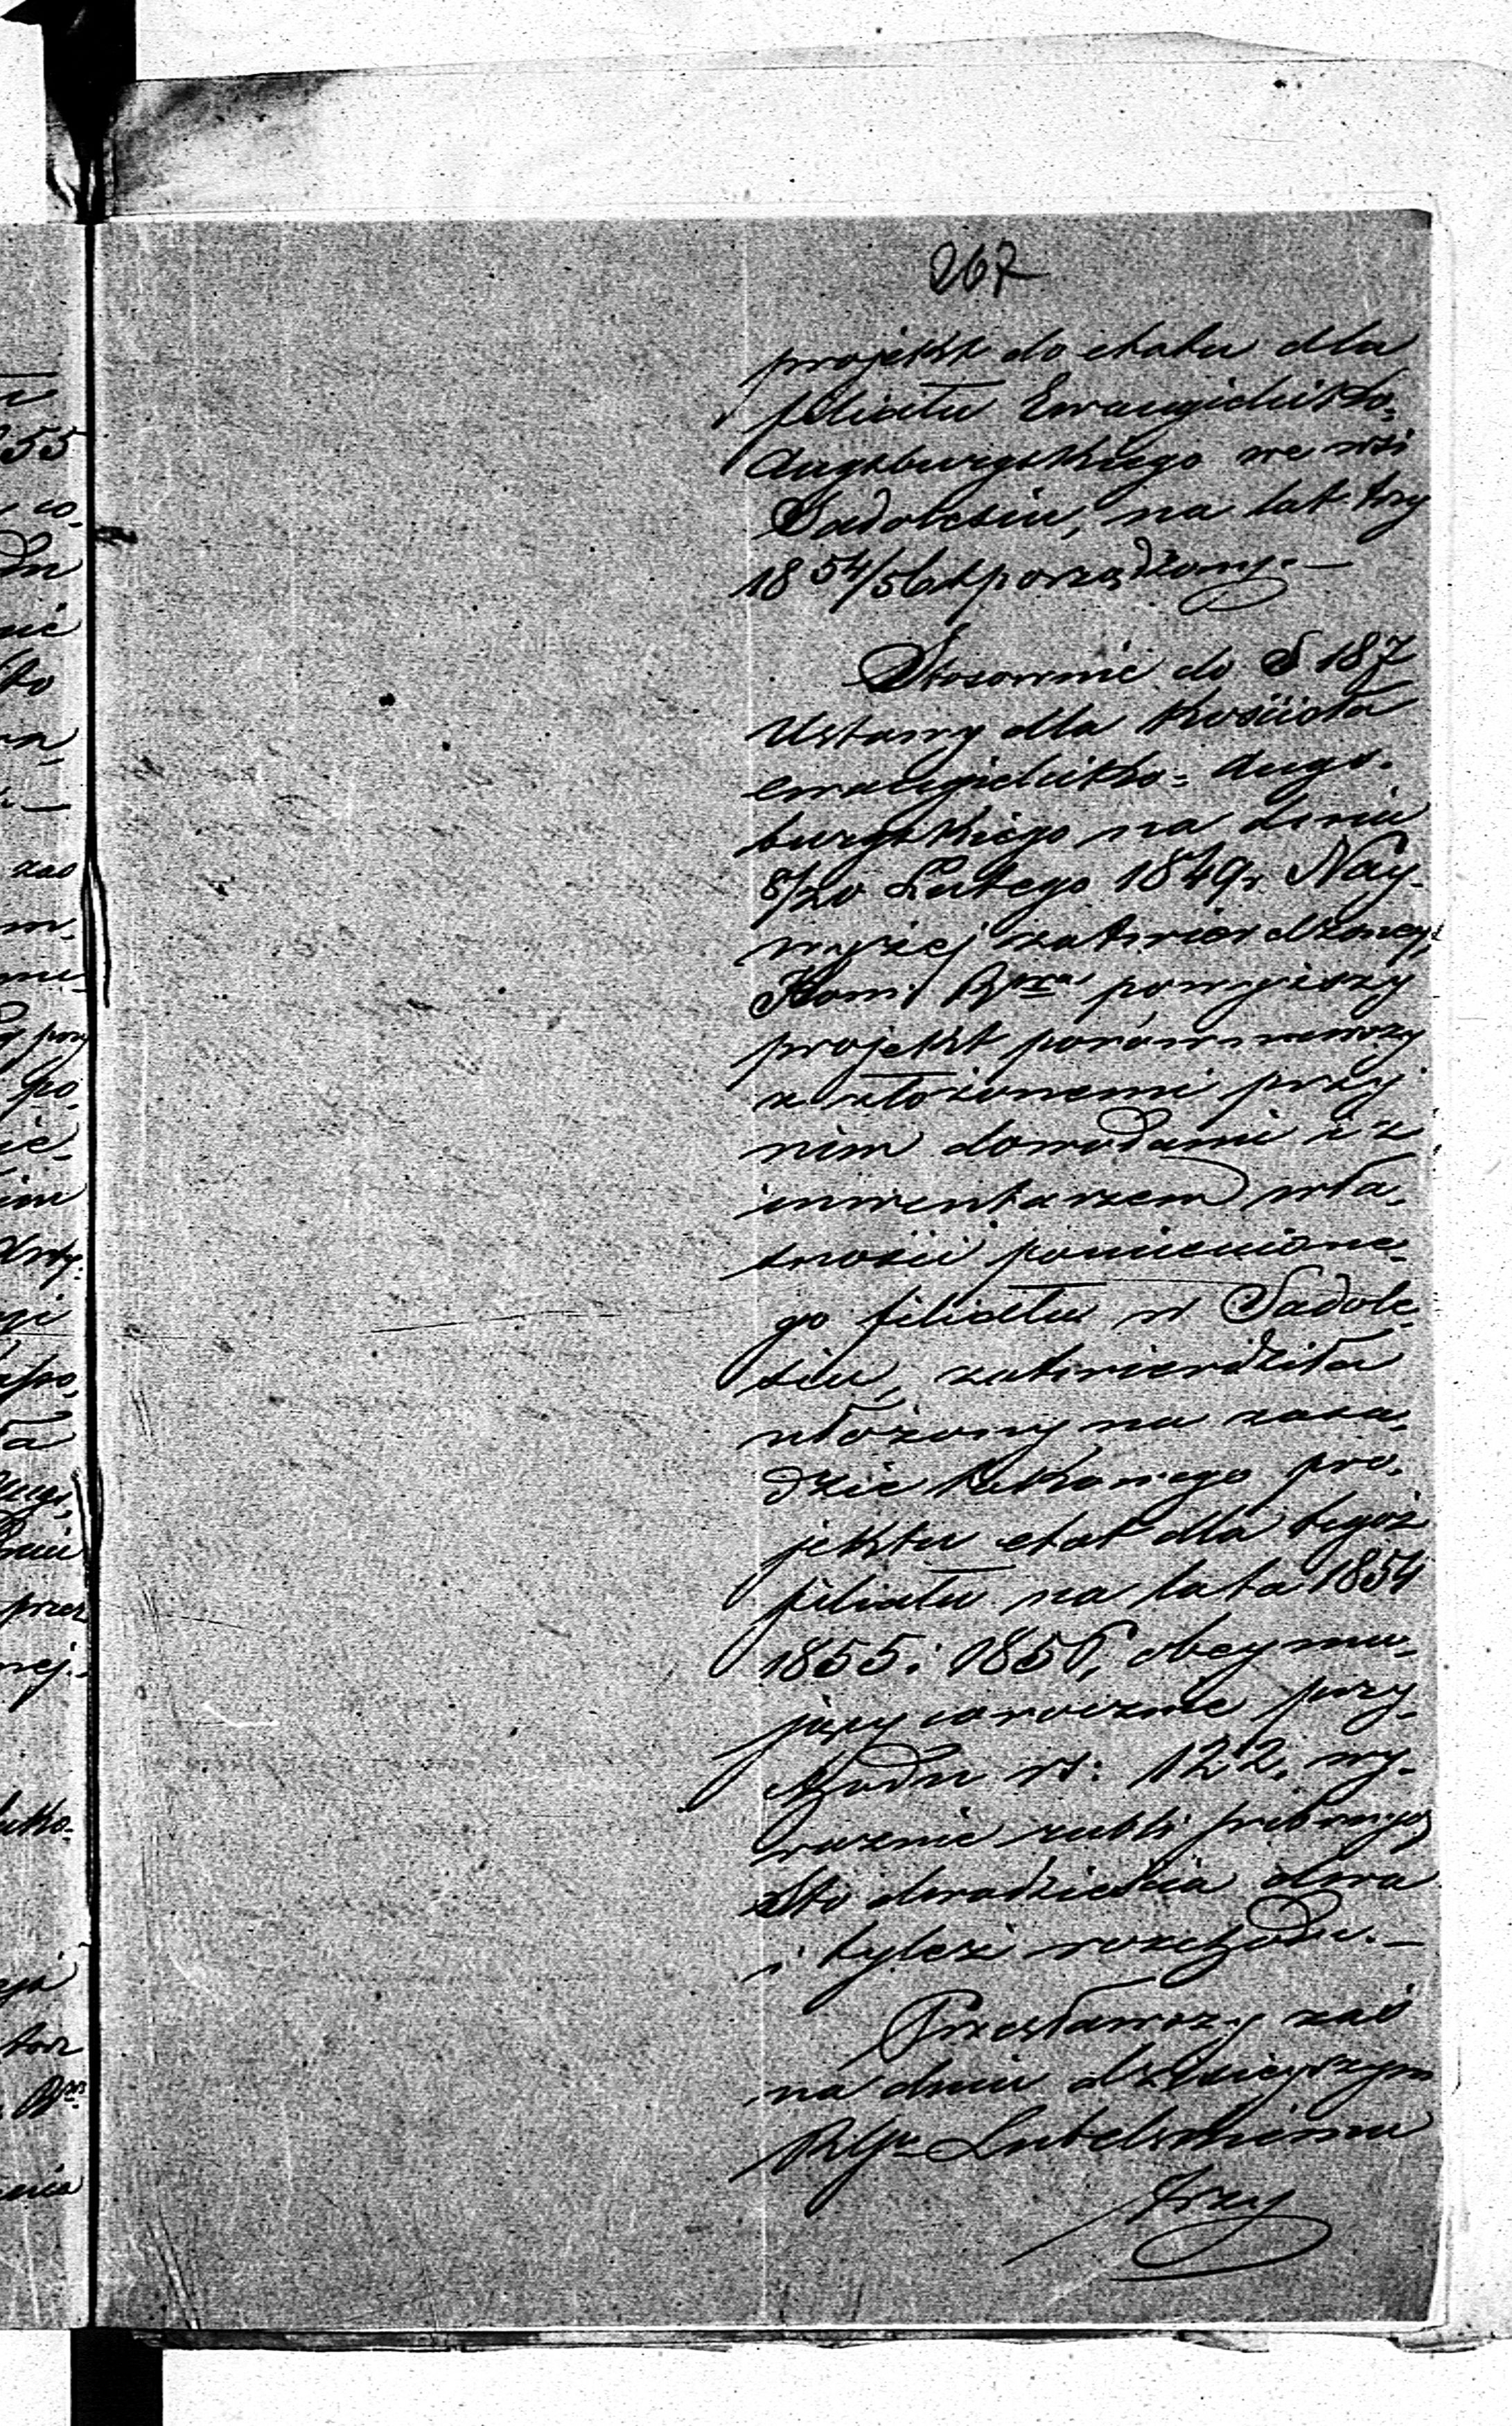 267
projekt do etatu dla
filiału Ewangielicko-
Augsburgskiego we wsi
Sadolesiu, na lat trzy
1854/56 sporządzony.—
Stosownie do § 187
Ustawy dla Kościoła
ewangielicko= Augs-
burgskiego na dniu
8/20 Lutego 1849 r. Nay-
wyżej zatwierdzoney,
Kom: Rzą powyższy
projekt porównawszy
z złożonemi przy
nim dowodami i z
inwentarzem wła-
sności pomienione-
go filiału w Sadole-
siu, zatwierdziła
ułożony na zasa-
dzie takowego pro-
jektu etat dla tegoż
filiału na lata 1854
1855 i 1856, obeymu-
jący corocznie przy-
chodu rs: 122, wy-
raźnie rubli srebrnych
sto dwadzieścia dwa
i tyleż rozchodu.—
Przesławszy zaś
na dniu dzisieyszym
RGu Lubelskiemu
Trzy
55
co-
dn
nić
to
zaś
przy
po-
im
przez